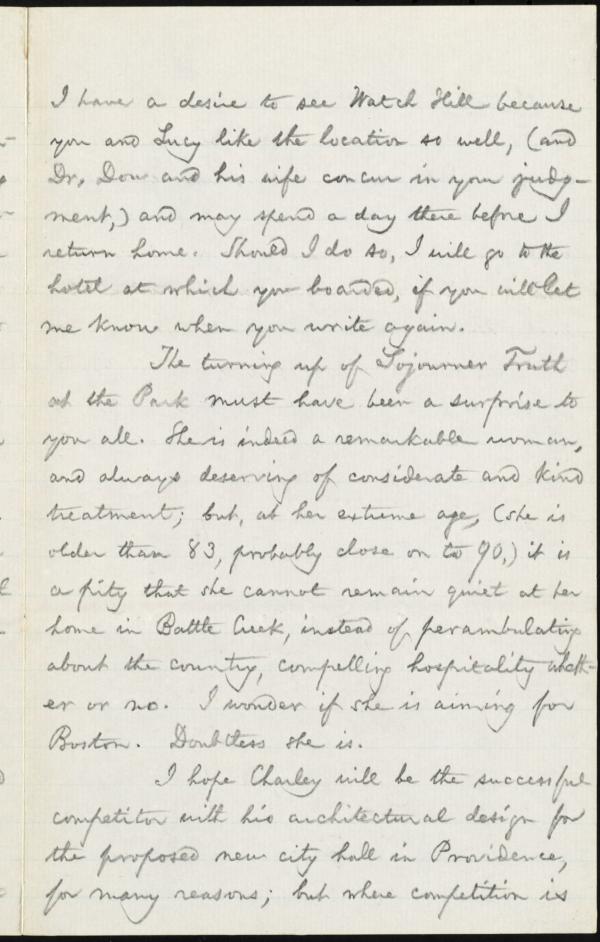 I have a desire to see Watch Hill because
you and Lucy like the location so well, (and
Dr. Dow and his wife concur in your judg-
ment,) and may spend a day there before I
return home. Should I do so, I will go to the
hotel at which you boarded, if you will let
me know when you write again.
The turning up of Sojourner Truth
at the Park must have been a surprise to
you all. She is indeed a remarkable woman,
and always deserving of considerate and kind
treatment; but, at her extreme age, (she is
older than 83, probably close on to 90,) it is
a pity that she cannot remain quiet at her
home in Battle Creek, instead of perambulating
about the country, compelling hospitality wheth-
er or no. I wonder if she is aiming for
Boston. Doubtless she is.
I hope Charley will be the successful
competitor with his architectural design for
the proposed new city hall in Providence,
for many reasons; but where competition is